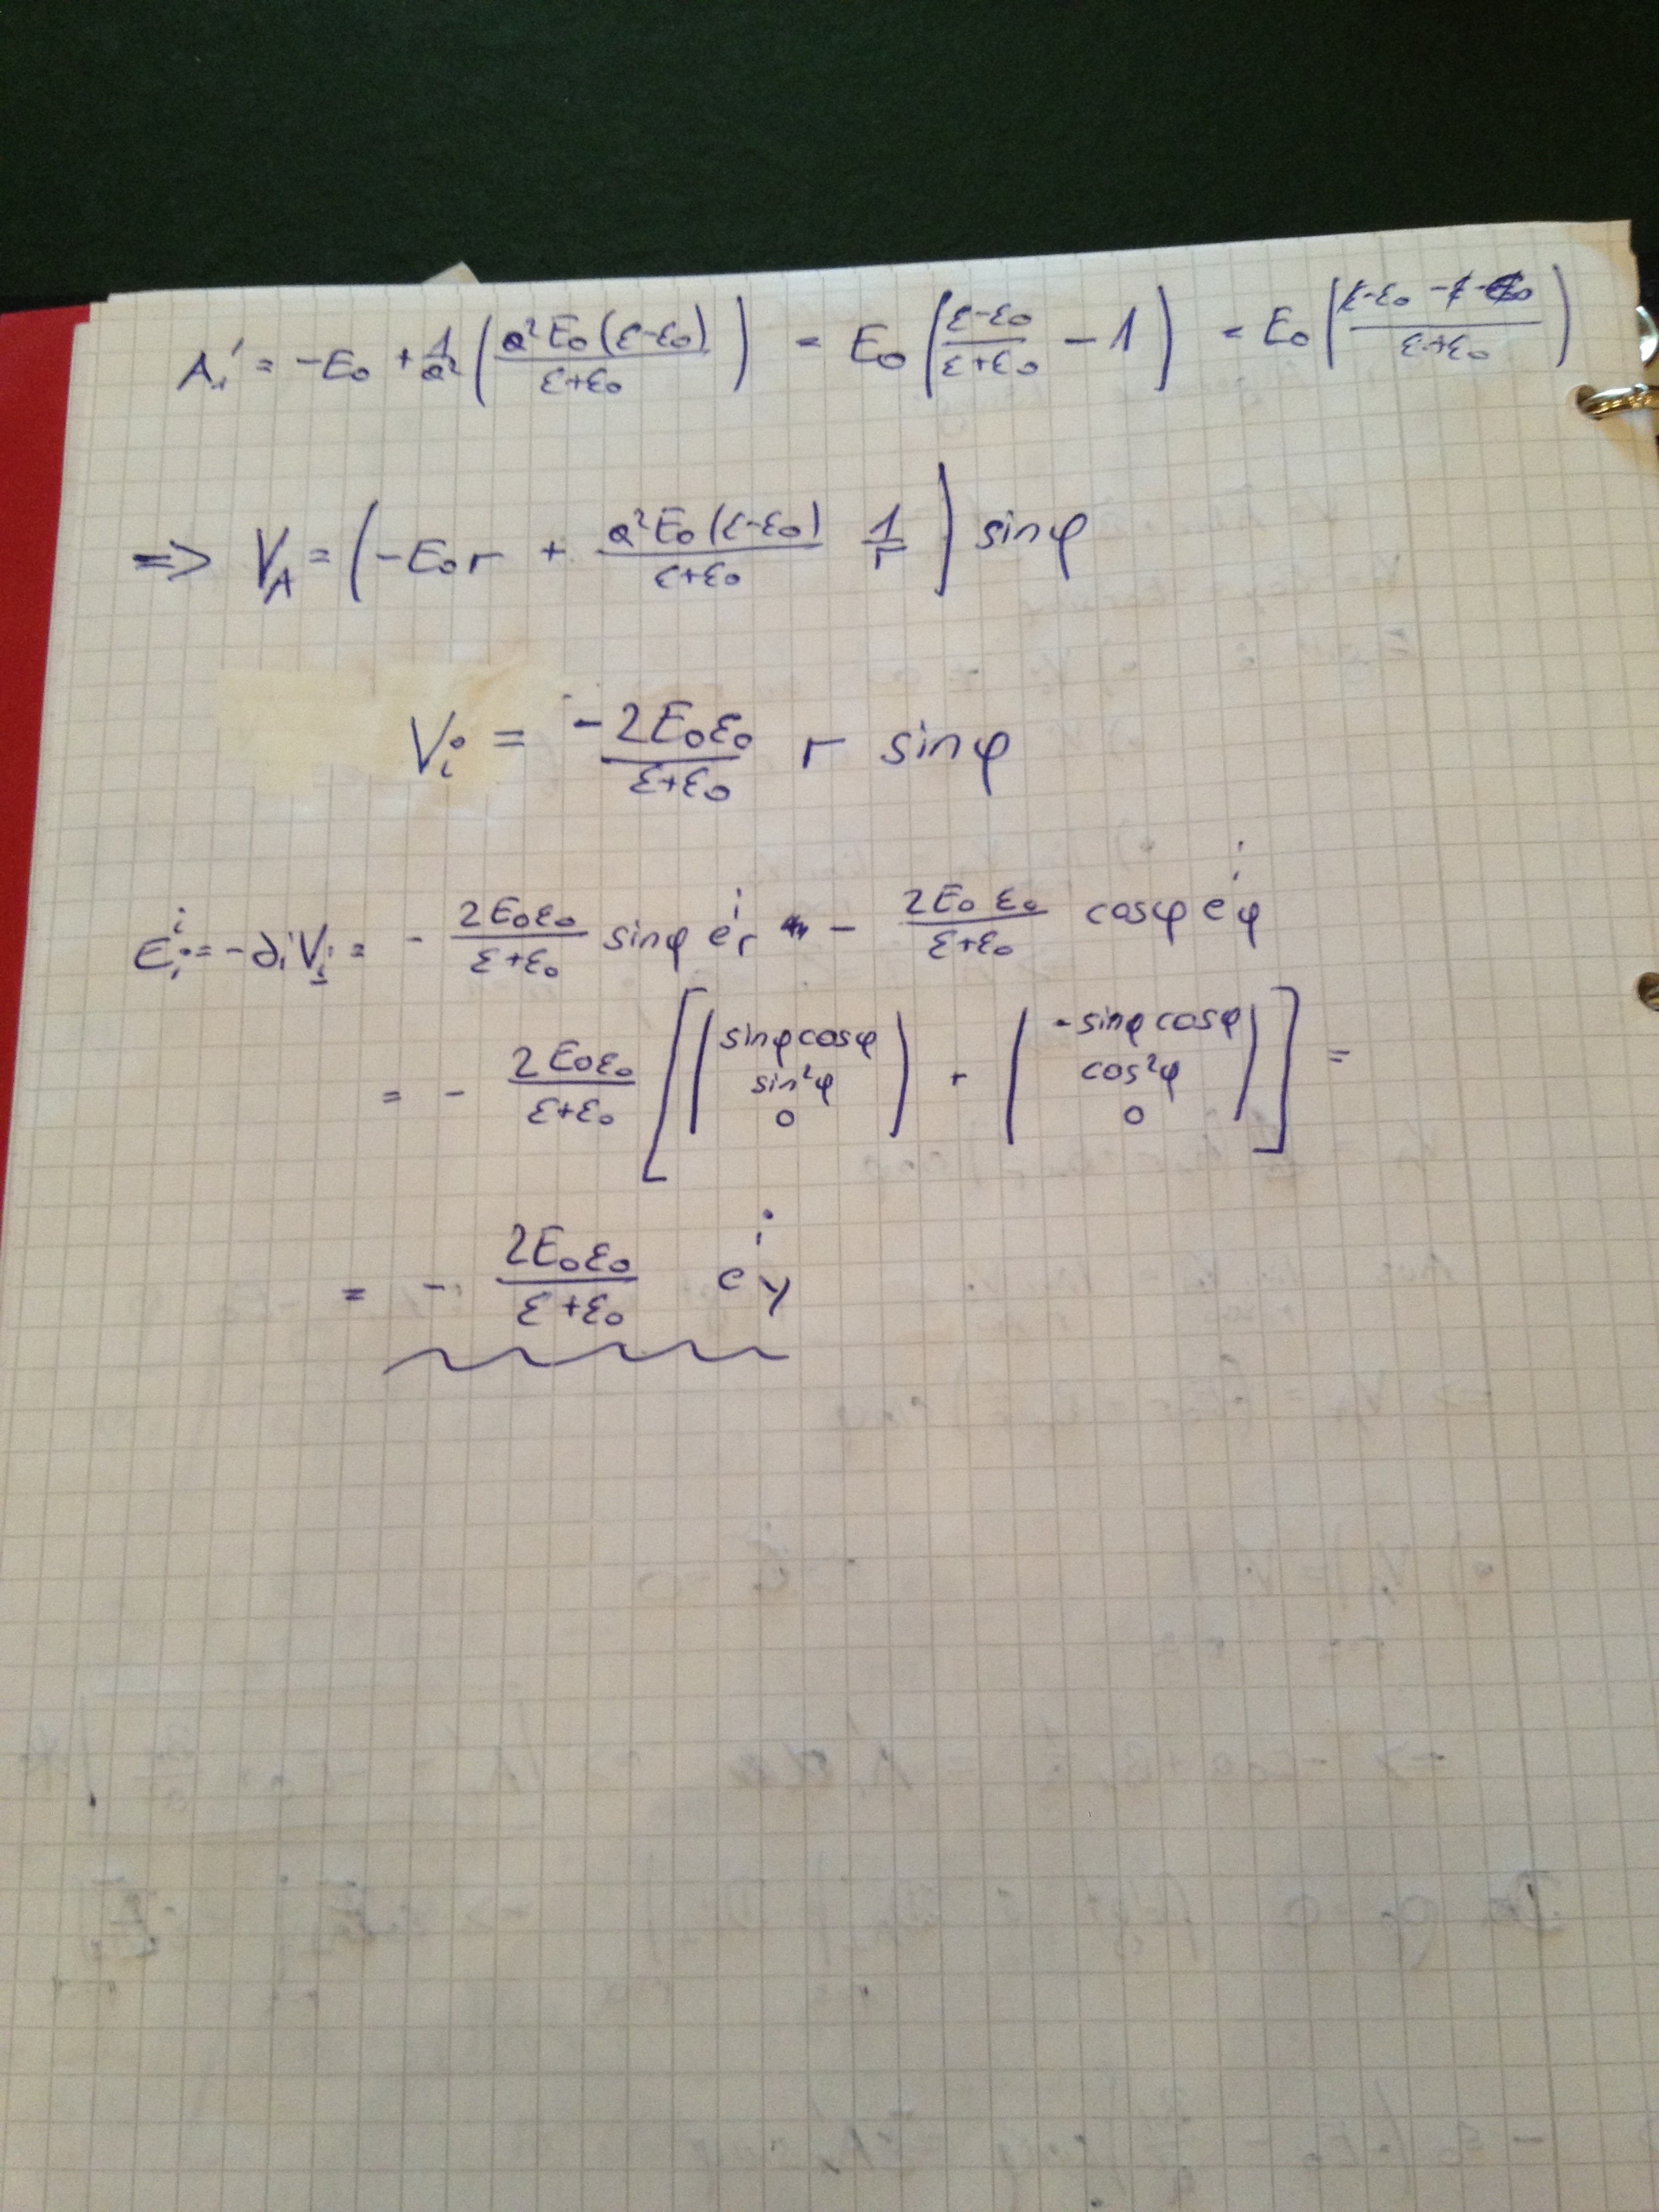 A₁' = -E₀ + 1/a² (a²E₀(ε-ε₀)/(ε+ε₀)) = E₀ ((ε-ε₀)/(ε+ε₀) - 1) = E₀ ((ε-ε₀-ε-ε₀)/(ε+ε₀))
=> V_A = (-E₀r + a²E₀(ε-ε₀)/(ε+ε₀) 1/r) sinφ
V_i = -2E₀ε₀/(ε+ε₀) r sinφ
E_i^i = -∂_i V_i = - 2E₀ε₀/(ε+ε₀) sinφ e_r^i - 2E₀ε₀/(ε+ε₀) cosφ e_φ^i
= - 2E₀ε₀/(ε+ε₀) [(sinφcosφ, sin²φ, 0) + (-sinφcosφ, cos²φ, 0)] =
= - 2E₀ε₀/(ε+ε₀) e_y^i